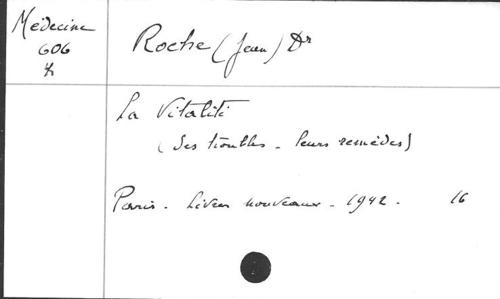 Médecine
606
Roche (Jean) Dr
La Vitalité
(Ses troubles - leurs remèdes)
Paris - Livres nouveaux - 1942 - 16